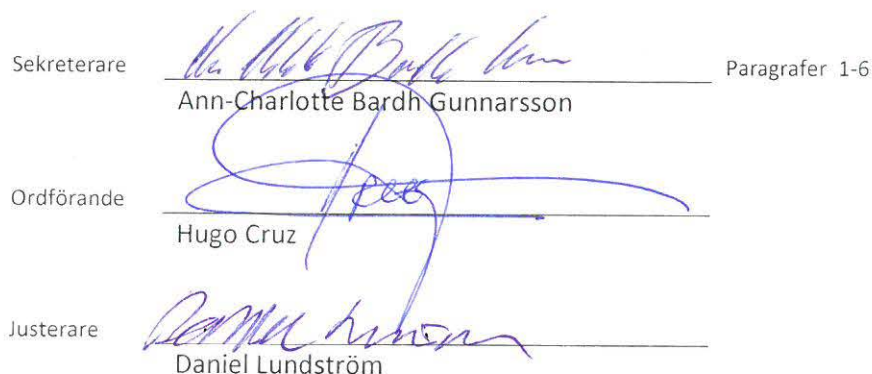 Sekreterare Paragrafer 1-6
Ann-Charlotte Bardh Gunnarsson
Ordförande
Hugo Cruz
Justerare
Daniel Lundström